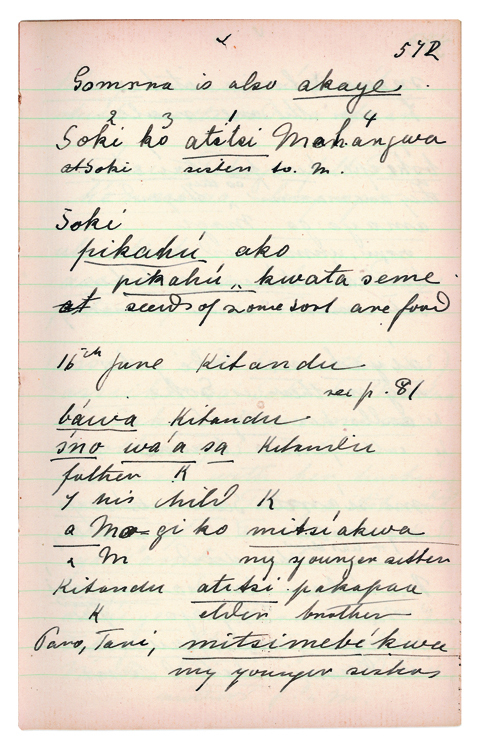 572
Gomrna is also akaye.
2 3 1 4
Soki ko atitsi Mahangwa
at Soki sister to. M.
Soki
pikahú ako
pikahú „ kwata seme
at seeds of some sort are food
16th June Kitandu
see p. 81
báwa Kitandu
íno wa'a sa Kitandu
father K
y his child K
a Mogi ko mitsíakwa
a M my younger sister
Kitandu atitsi pakapaa
K elder brother
Paro, Tani, mitsimebíkwa
my younger sisters